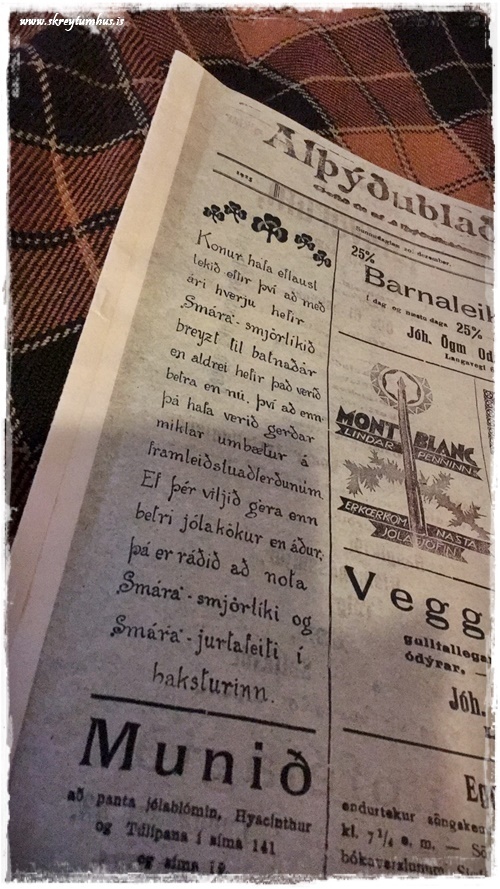 www.skreytumhus.is
Alþýðublað
1928
Konur hafa eflaust
tekið eftir því að með
ári hverju hefir
Smára-smjörlíkið
breyzt til batnaðar
en aldrei hefir það verið
betra en nú, því að enn
þá hafa verið gerðar
miklar umbætur á
framleiðsluaðferðunum
Ef þér viljið gera enn
betri jólakökur en áður,
þá er ráðið að nota
Smára-smjörlíki og
Smára-jurtafeiti í
baksturinn.
Munið
að panta jólablómin, Hyacinthur
og Túlípana í síma 141
og síma
25%
Barnaleik
í dag og næstu daga 25%
Jóh. Ögm. Od
Laugavegi
MONT BLANC
LINDAR PENNINN
ER KÆRKOMNASTA
JÓLAGJÖFIN
Vegg
gullfallegar
ódýrar. —
Jóh.
endurtekur söngskem
kl. 7 1/4 e. m. —
bókaverzlunum